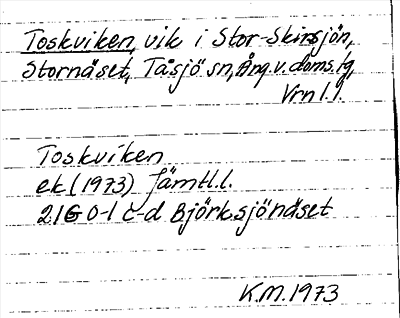 Toskviken, vik i Stor-Skirsjön,
Stornäset, Tåsjö sn, Ång. v. doms. tg,
Vrn l. l.
Toskviken
ek. (1973) Jämtl. l.
21G 0-1 c-d Björksjönäset
K.M. 1973